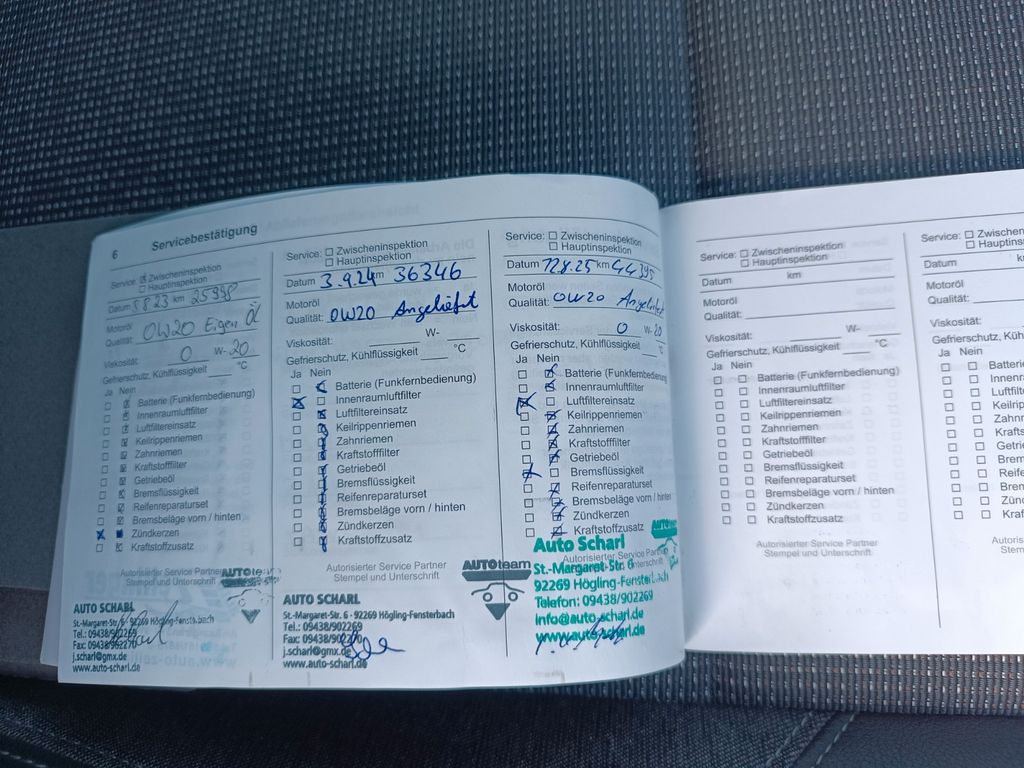 6 Servicebestätigung
Service: Zwischeninspektion
Hauptinspektion
Datum 5 8 23 km 25998
Motoröl
Qualität: 0W20 Eigen Öl
Viskosität: 0 W- 20
Gefrierschutz, Kühlflüssigkeit °C
Ja Nein
Batterie (Funkfernbedienung)
Innenraumluftfilter
Luftfiltereinsatz
Keilrippenriemen
Zahnriemen
Kraftstofffilter
Getriebeöl
Bremsflüssigkeit
Reifenreparaturset
Bremsbeläge vorn / hinten
Zündkerzen
Kraftstoffzusatz
Autorisierter Service Partner
Stempel und Unterschrift
AUTOteam
AUTO SCHARL
St.-Margaret-Str. 6 · 92269 Högling-Fensterbach
Tel.: 09438/902269
Fax: 09438/902270
j.scharl@gmx.de
www.auto-scharl.de
Service: Zwischeninspektion
Hauptinspektion
Datum 3.9.24 km 36346
Motoröl
Qualität: 0W20 Angeliefert
Viskosität: W-
Gefrierschutz, Kühlflüssigkeit °C
Ja Nein
Batterie (Funkfernbedienung)
Innenraumluftfilter
Luftfiltereinsatz
Keilrippenriemen
Zahnriemen
Kraftstofffilter
Getriebeöl
Bremsflüssigkeit
Reifenreparaturset
Bremsbeläge vorn / hinten
Zündkerzen
Kraftstoffzusatz
Autorisierter Service Partner
Stempel und Unterschrift
AUTOteam
AUTO SCHARL
St.-Margaret-Str. 6 · 92269 Högling-Fensterbach
Tel.: 09438/902269
Fax: 09438/902270
j.scharl@gmx.de
www.auto-scharl.de
Service: Zwischeninspektion
Hauptinspektion
Datum 12.8.25 km 44395
Motoröl
Qualität: 0W20 Angeliefert
Viskosität: 0 W- 20
Gefrierschutz, Kühlflüssigkeit °C
Ja Nein
Batterie (Funkfernbedienung)
Innenraumluftfilter
Luftfiltereinsatz
Keilrippenriemen
Zahnriemen
Kraftstofffilter
Getriebeöl
Bremsflüssigkeit
Reifenreparaturset
Bremsbeläge vorn / hinten
Zündkerzen
Kraftstoffzusatz
Autorisierter Service Partner
Unterschrift
Auto Scharl
St.-Margaret-Str. 6
92269 Högling-Fensterbach
Telefon: 09438/902269
info@auto-scharl.de
www.auto-scharl.de
Service: Zwischeninspektion
Hauptinspektion
Datum km
Motoröl
Qualität:
Viskosität: W-
Gefrierschutz, Kühlflüssigkeit °C
Ja Nein
Batterie (Funkfernbedienung)
Innenraumluftfilter
Luftfiltereinsatz
Keilrippenriemen
Zahnriemen
Kraftstofffilter
Getriebeöl
Bremsflüssigkeit
Reifenreparaturset
Bremsbeläge vorn / hinten
Zündkerzen
Kraftstoffzusatz
Autorisierter Service Partner
Stempel und Unterschrift
Service: Zwischen
Hauptins
Datum
Motoröl
Qualität:
Viskosität:
Gefrierschutz, Kühlflüss
Ja Nein
Batterie
Innenr
Luftfilt
Keilrip
Zahnr
Krafts
Getrie
Brem
Reife
Brem
Zünd
Kraf
Autoris
Ste